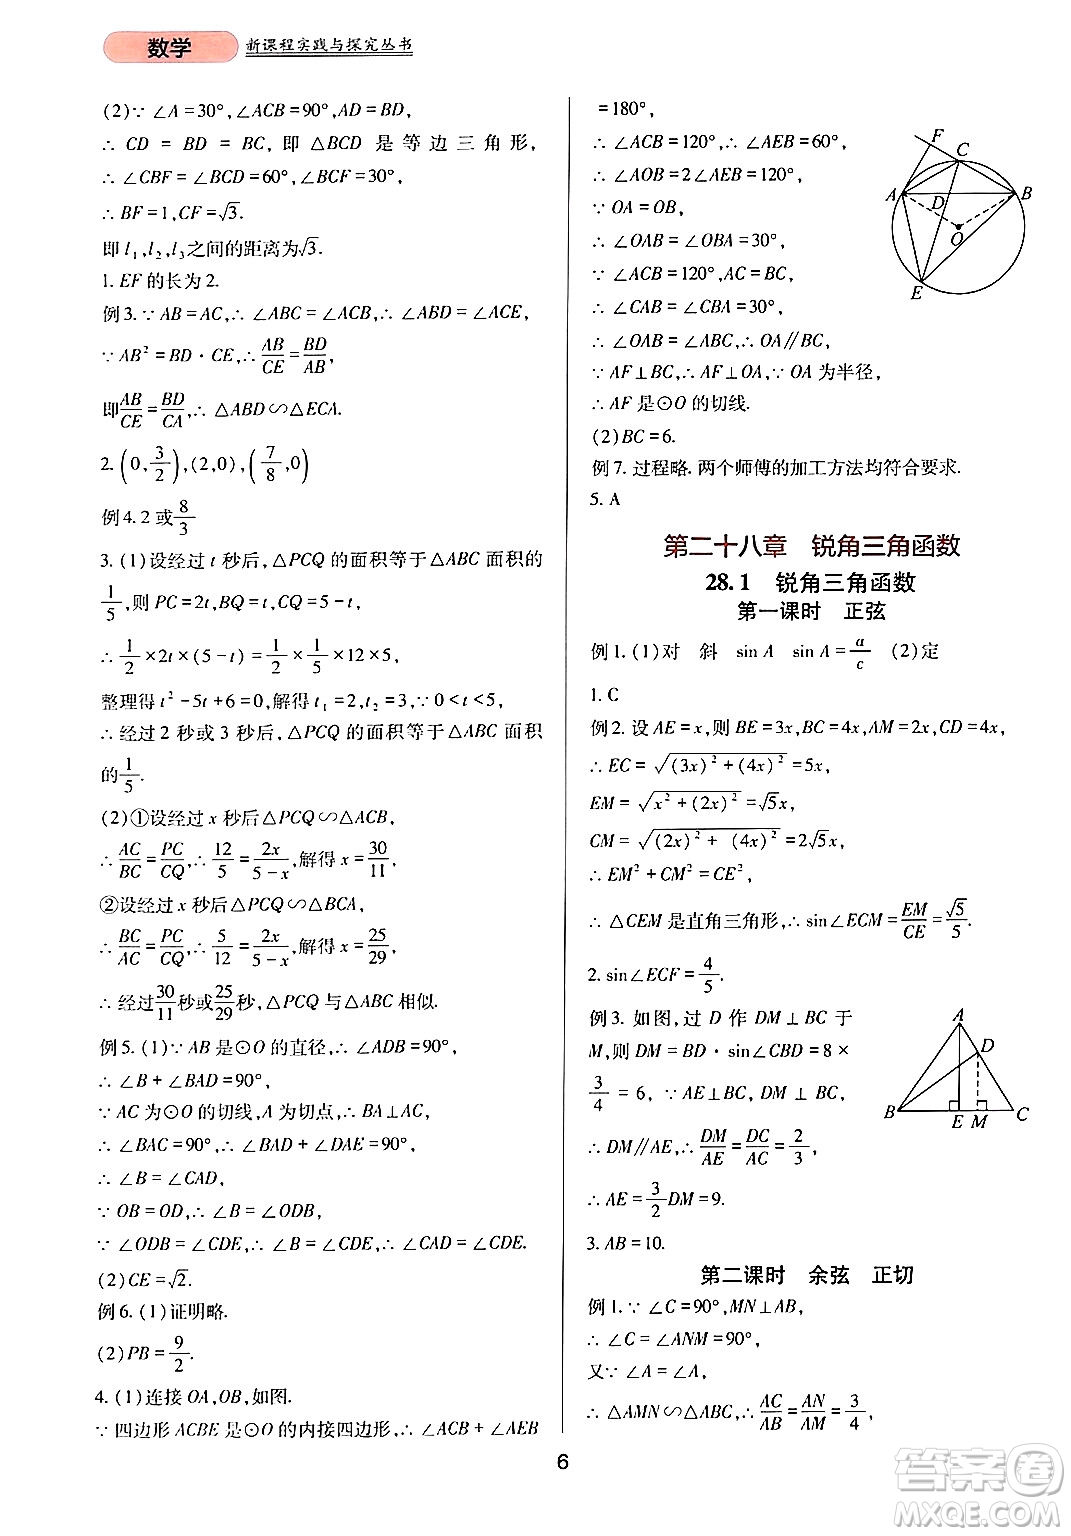 数学 新课程实践与探究丛书
(2)∵ ∠A=30°,∠ACB=90°,AD=BD,
∴ CD = BD = BC,即 △BCD 是等边三角形,
∴ ∠CBF=∠BCD=60°,∠BCF=30°,
∴ BF=1,CF=√3.
即 l₁,l₂,l₃之间的距离为√3.
1. EF 的长为 2.
例 3. ∵ AB=AC,∴ ∠ABC=∠ACB,∴ ∠ABD=∠ACE,
∵ AB²=BD·CE,∴ AB/CE=BD/AB,
即AB/CE=BD/CA,∴ △ABD∽△ECA.
2. (0,3/2),(2,0),(7/8,0)
例 4. 2 或8/3
3. (1)设经过 t 秒后,△PCQ 的面积等于△ABC 面积的
1/5,则 PC=2t,BQ=t,CQ=5-t,
∴ 1/2×2t×(5-t)=1/2×1/5×12×5,
整理得 t²-5t+6=0,解得 t₁=2,t₂=3,∵ 0<t<5,
∴ 经过 2 秒或 3 秒后,△PCQ 的面积等于△ABC 面积
的1/5.
(2)①设经过 x 秒后△PCQ∽△ACB,
∴ AC/BC=PC/CQ,∴ 12/5=2x/(5-x),解得 x=30/11,
②设经过 x 秒后△PCQ∽△BCA,
∴ BC/AC=PC/CQ,∴ 5/12=2x/(5-x),解得 x=25/29,
∴ 经过30/11秒或25/29秒,△PCQ 与△ABC 相似.
例 5. (1)∵ AB 是⊙O 的直径,∴ ∠ADB=90°,
∴ ∠B+∠BAD=90°,
∵ AC 为⊙O 的切线,A 为切点,∴ BA⊥AC,
∴ ∠BAC=90°,∴ ∠BAD+∠DAE=90°,
∴ ∠B=∠CAD,
∵ OB=OD,∴ ∠B=∠ODB,
∵ ∠ODB=∠CDE,∴ ∠B=∠CDE,∴ ∠CAD=∠CDE.
(2)CE=√2.
例 6. (1)证明略.
(2)PB=9/2.
4. (1)连接 OA,OB,如图.
∵ 四边形 ACBE 是⊙O 的内接四边形,∴ ∠ACB+∠AEB
=180°,
∴ ∠ACB=120°,∴ ∠AEB=60°,
∴ ∠AOB=2∠AEB=120°,
∵ OA=OB,
∴ ∠OAB=∠OBA=30°,
∵ ∠ACB=120°,AC=BC,
∴ ∠CAB=∠CBA=30°,
∴ ∠OAB=∠ABC,∴ OA∥BC,
∵ AF⊥BC,∴ AF⊥OA,∵ OA 为半径,
∴ AF 是⊙O 的切线.
(2)BC=6.
F
C
A
D
B
O
E
例 7. 过程略. 两个师傅的加工方法均符合要求.
5. A
第二十八章 锐角三角函数
28.1 锐角三角函数
第一课时 正弦
例 1. (1)对 斜 sin A sin A=a/c (2)定
1. C
例 2. 设 AE=x,则 BE=3x,BC=4x,AM=2x,CD=4x,
∴ EC=√((3x)²+(4x)²)=5x,
EM=√(x²+(2x)²)=√5x,
CM=√((2x)²+(4x)²)=2√5x,
∴ EM²+CM²=CE²,
∴ △CEM 是直角三角形,∴ sin∠ECM=EM/CE=√5/5.
2. sin∠ECF=4/5.
例 3. 如图,过 D 作 DM⊥BC 于
M,则 DM=BD·sin∠CBD=8×
3/4=6,∵ AE⊥BC,DM⊥BC,
∴ DM∥AE,∴ DM/AE=DC/AC=2/3,
∴ AE=3/2DM=9.
A
D
B
E M C
3. AB=10.
第二课时 余弦 正切
例 1. ∵ ∠C=90°,MN⊥AB,
∴ ∠C=∠ANM=90°,
又∵ ∠A=∠A,
∴ △AMN∽△ABC,∴ AC/AB=AN/AM=3/4,
6
答案圈
MXQE.COM